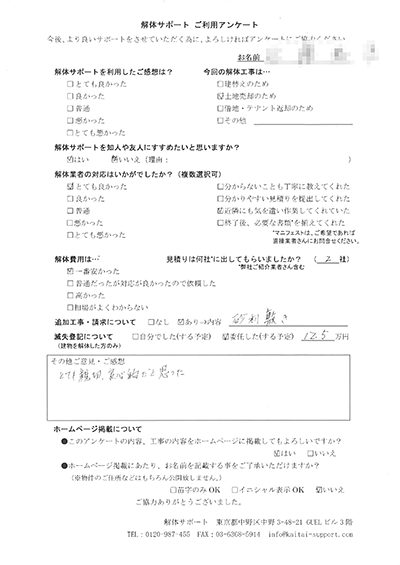 解体サポート ご利用アンケート
今後、より良いサポートをさせていただく為に、よろしければアンケートにご協力ください。
お名前
解体サポートを利用したご感想は? 今回の解体工事は…
□とても良かった □建替えのため
□良かった ☑土地売却のため
□普通 □借地・テナント返却のため
□悪かった □その他
□とても悪かった
解体サポートを知人や友人にすすめたいと思いますか?
☑はい □いいえ(理由: )
解体業者の対応はいかがでしたか?(複数選択可)
☑とても良かった □分からないことも丁寧に教えてくれた
□良かった □分かりやすい見積りを提出してくれた
□普通 ☑近隣にも気を遣い作業してくれていた
□悪かった □終了後、必要な書類*を揃えてくれた
□とても悪かった *マニフェストは、ご希望であれば
直接業者さんにお問合せください。
解体費用は… 見積りは何社*に出してもらいましたか? ( 2 社)
☑一番安かった *弊社ご紹介業者さん含む
□普通だったが対応が良かったので依頼した
□高かった
□相場がよくわからない
追加工事・請求について □なし ☑あり→内容 砂利敷き
滅失登記について □自分でした(する予定) ☑委託した(する予定) 12.5 万円
(建物を解体した方のみ)
その他ご意見・ご感想
とても親切、
ホームページ掲載について
●このアンケートの内容、工事の内容をホームページに掲載してもよろしいですか?
☑はい □いいえ
●ホームページ掲載にあたり、お名前を記載する事をご了承いただけますか?
(※物件のご住所などはもちろん公開致しません。)
□苗字のみOK □イニシャル表示OK ☑いいえ
ご協力ありがとうございました。
解体サポート 東京都中野区中野3-48-21 GUELビル3階
TEL:0120-987-455 FAX:03-6368-5914 info@kaitai-support.com